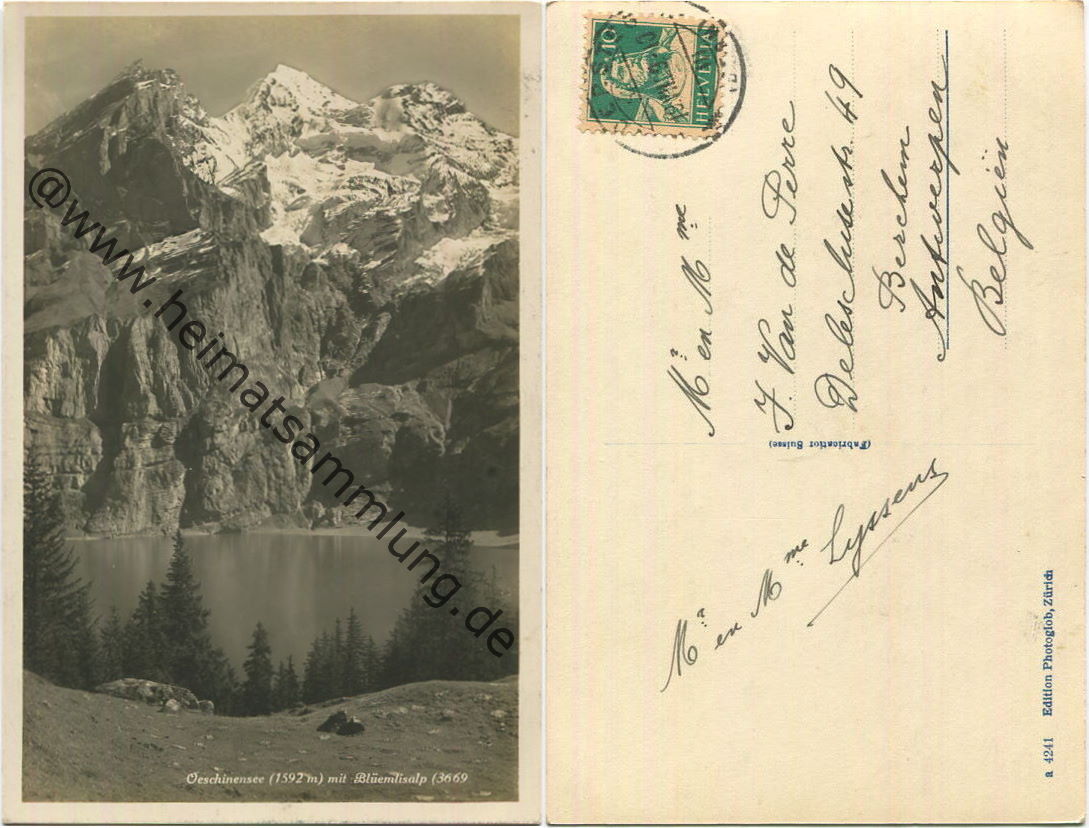 @www.heimatsammlung.de
Oeschinensee (1592 m) mit Blüemlisalp (3669
10
HELVETIA
Mr en Mme
J. Van de Perre
49
Berchem
Antwerpen
Belgien
(Fabrication Suisse)
Mr en Mme Lyssens
a 4241 Edition Photoglob, Zürich